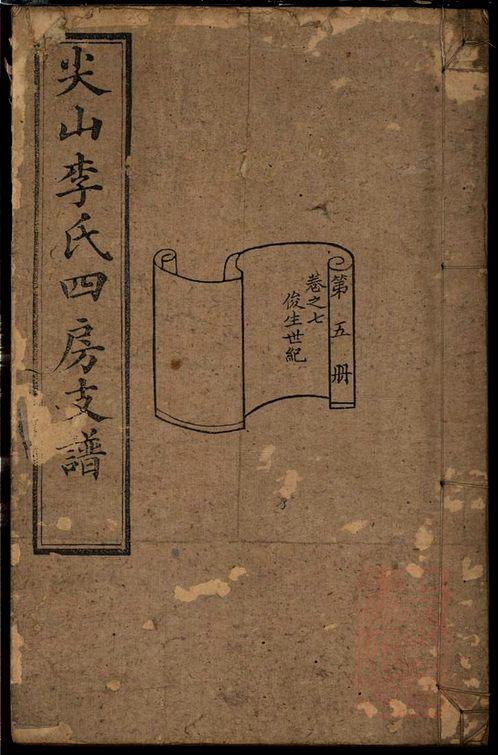 尖山李氏四房支譜
第五册
卷之七
俊生世紀